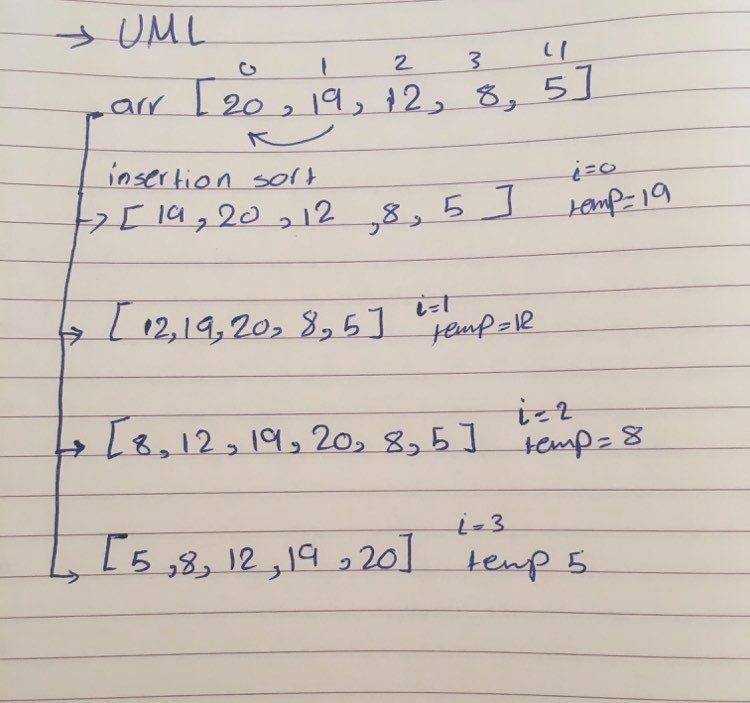 → UML
0 1 2 3 4
arr [20, 19, 12, 8, 5]
insertion sort
i=0
→ [19, 20, 12, 8, 5] temp=19
→ [12, 19, 20, 8, 5] i=1
temp=12
→ [8, 12, 19, 20, 8, 5] i=2
temp=8
i=3
→ [5, 8, 12, 19, 20] temp 5